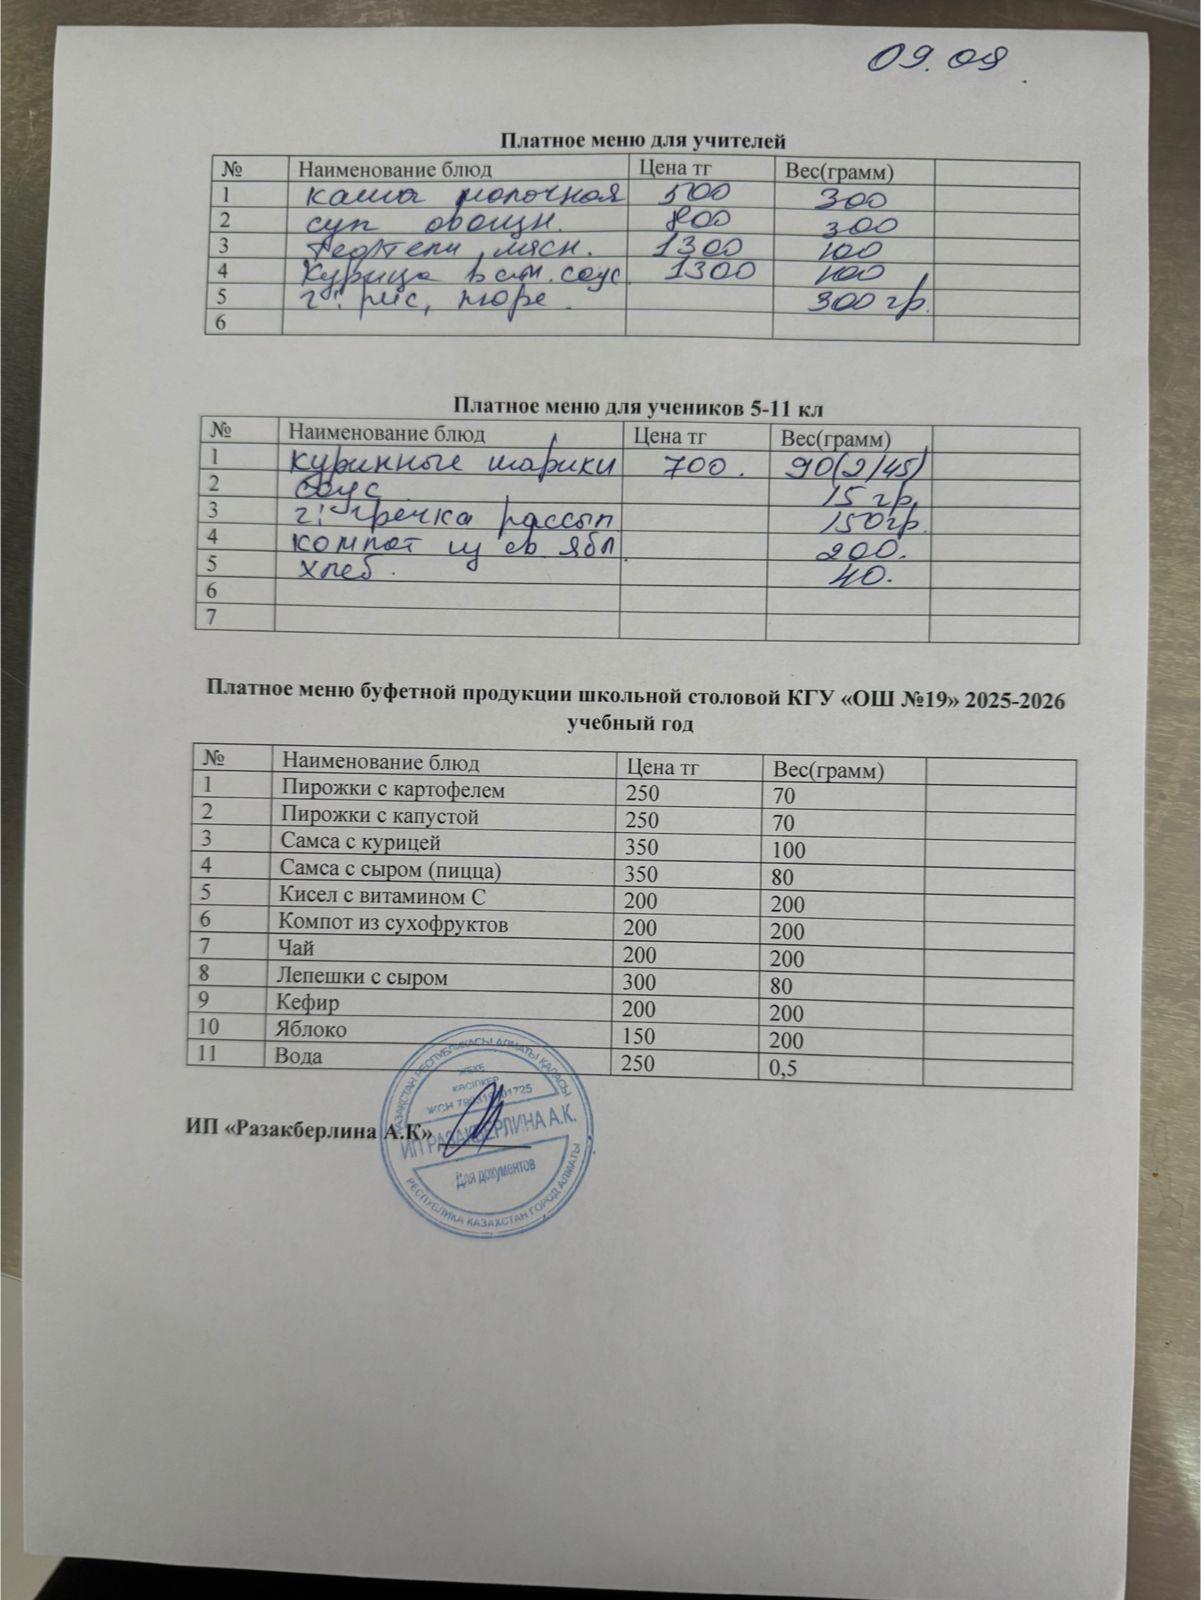 09.09
Платное меню для учителей
№ Наименование блюд Цена тг Вес(грамм)
1 каша молочная 500 300
2 суп овощн. 800 300
3 тефтели мясн. 1300 100
4 Курица в см. соус. 1300 100
5 г: рис, пюре. 300 гр.
6
Платное меню для учеников 5-11 кл
№ Наименование блюд Цена тг Вес(грамм)
1 куринные шарики 700. 90(2/45)
2 соус. 15 гр.
3 г: гречка рассып. 150гр.
4 компот из св ябл. 200.
5 хлеб. 40.
6
7
Платное меню буфетной продукции школьной столовой КГУ «ОШ №19» 2025-2026
учебный год
№ Наименование блюд Цена тг Вес(грамм)
1 Пирожки с картофелем 250 70
2 Пирожки с капустой 250 70
3 Самса с курицей 350 100
4 Самса с сыром (пицца) 350 80
5 Кисел с витамином С 200 200
6 Компот из сухофруктов 200 200
7 Чай 200 200
8 Лепешки с сыром 300 80
9 Кефир 200 200
10 Яблоко 150 200
11 Вода 250 0,5
ҚАЗАҚСТАН РЕСПУБЛИКАСЫ АЛМАТЫ ҚАЛАСЫ
ЖЕКЕ
КӘСІПКЕР
ЖСН
ИП «Разакберлина А.К»
ИП РАЗАКБЕРЛИНА А.К.
Для документов
РЕСПУБЛИКА КАЗАХСТАН ГОРОД АЛМАТЫ